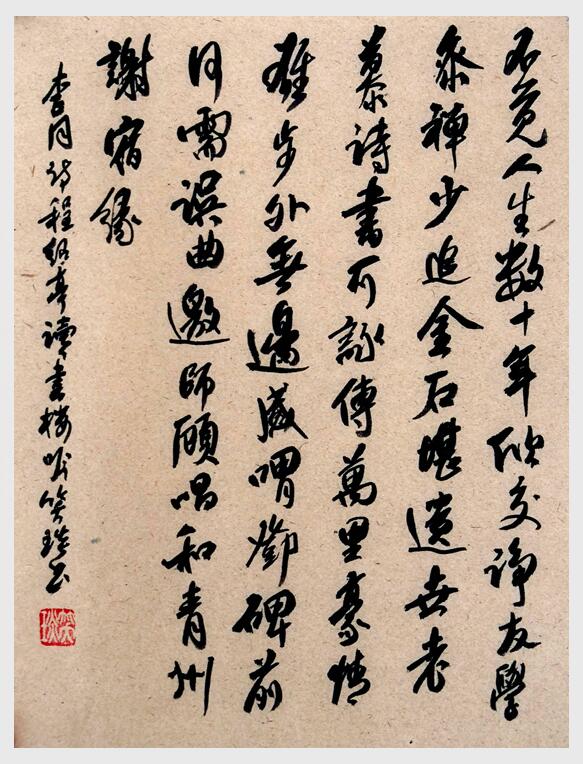 不觉人生数十年欣交諍友學
參禪少追金石堪遺世老
慕詩書可詠傳萬里豪情
雄步外無邊感喟鄧碑前
何需誤曲邀師顧唱和青州
謝宿緣
李同詩程紹亭讀書楼嘱笑琰书